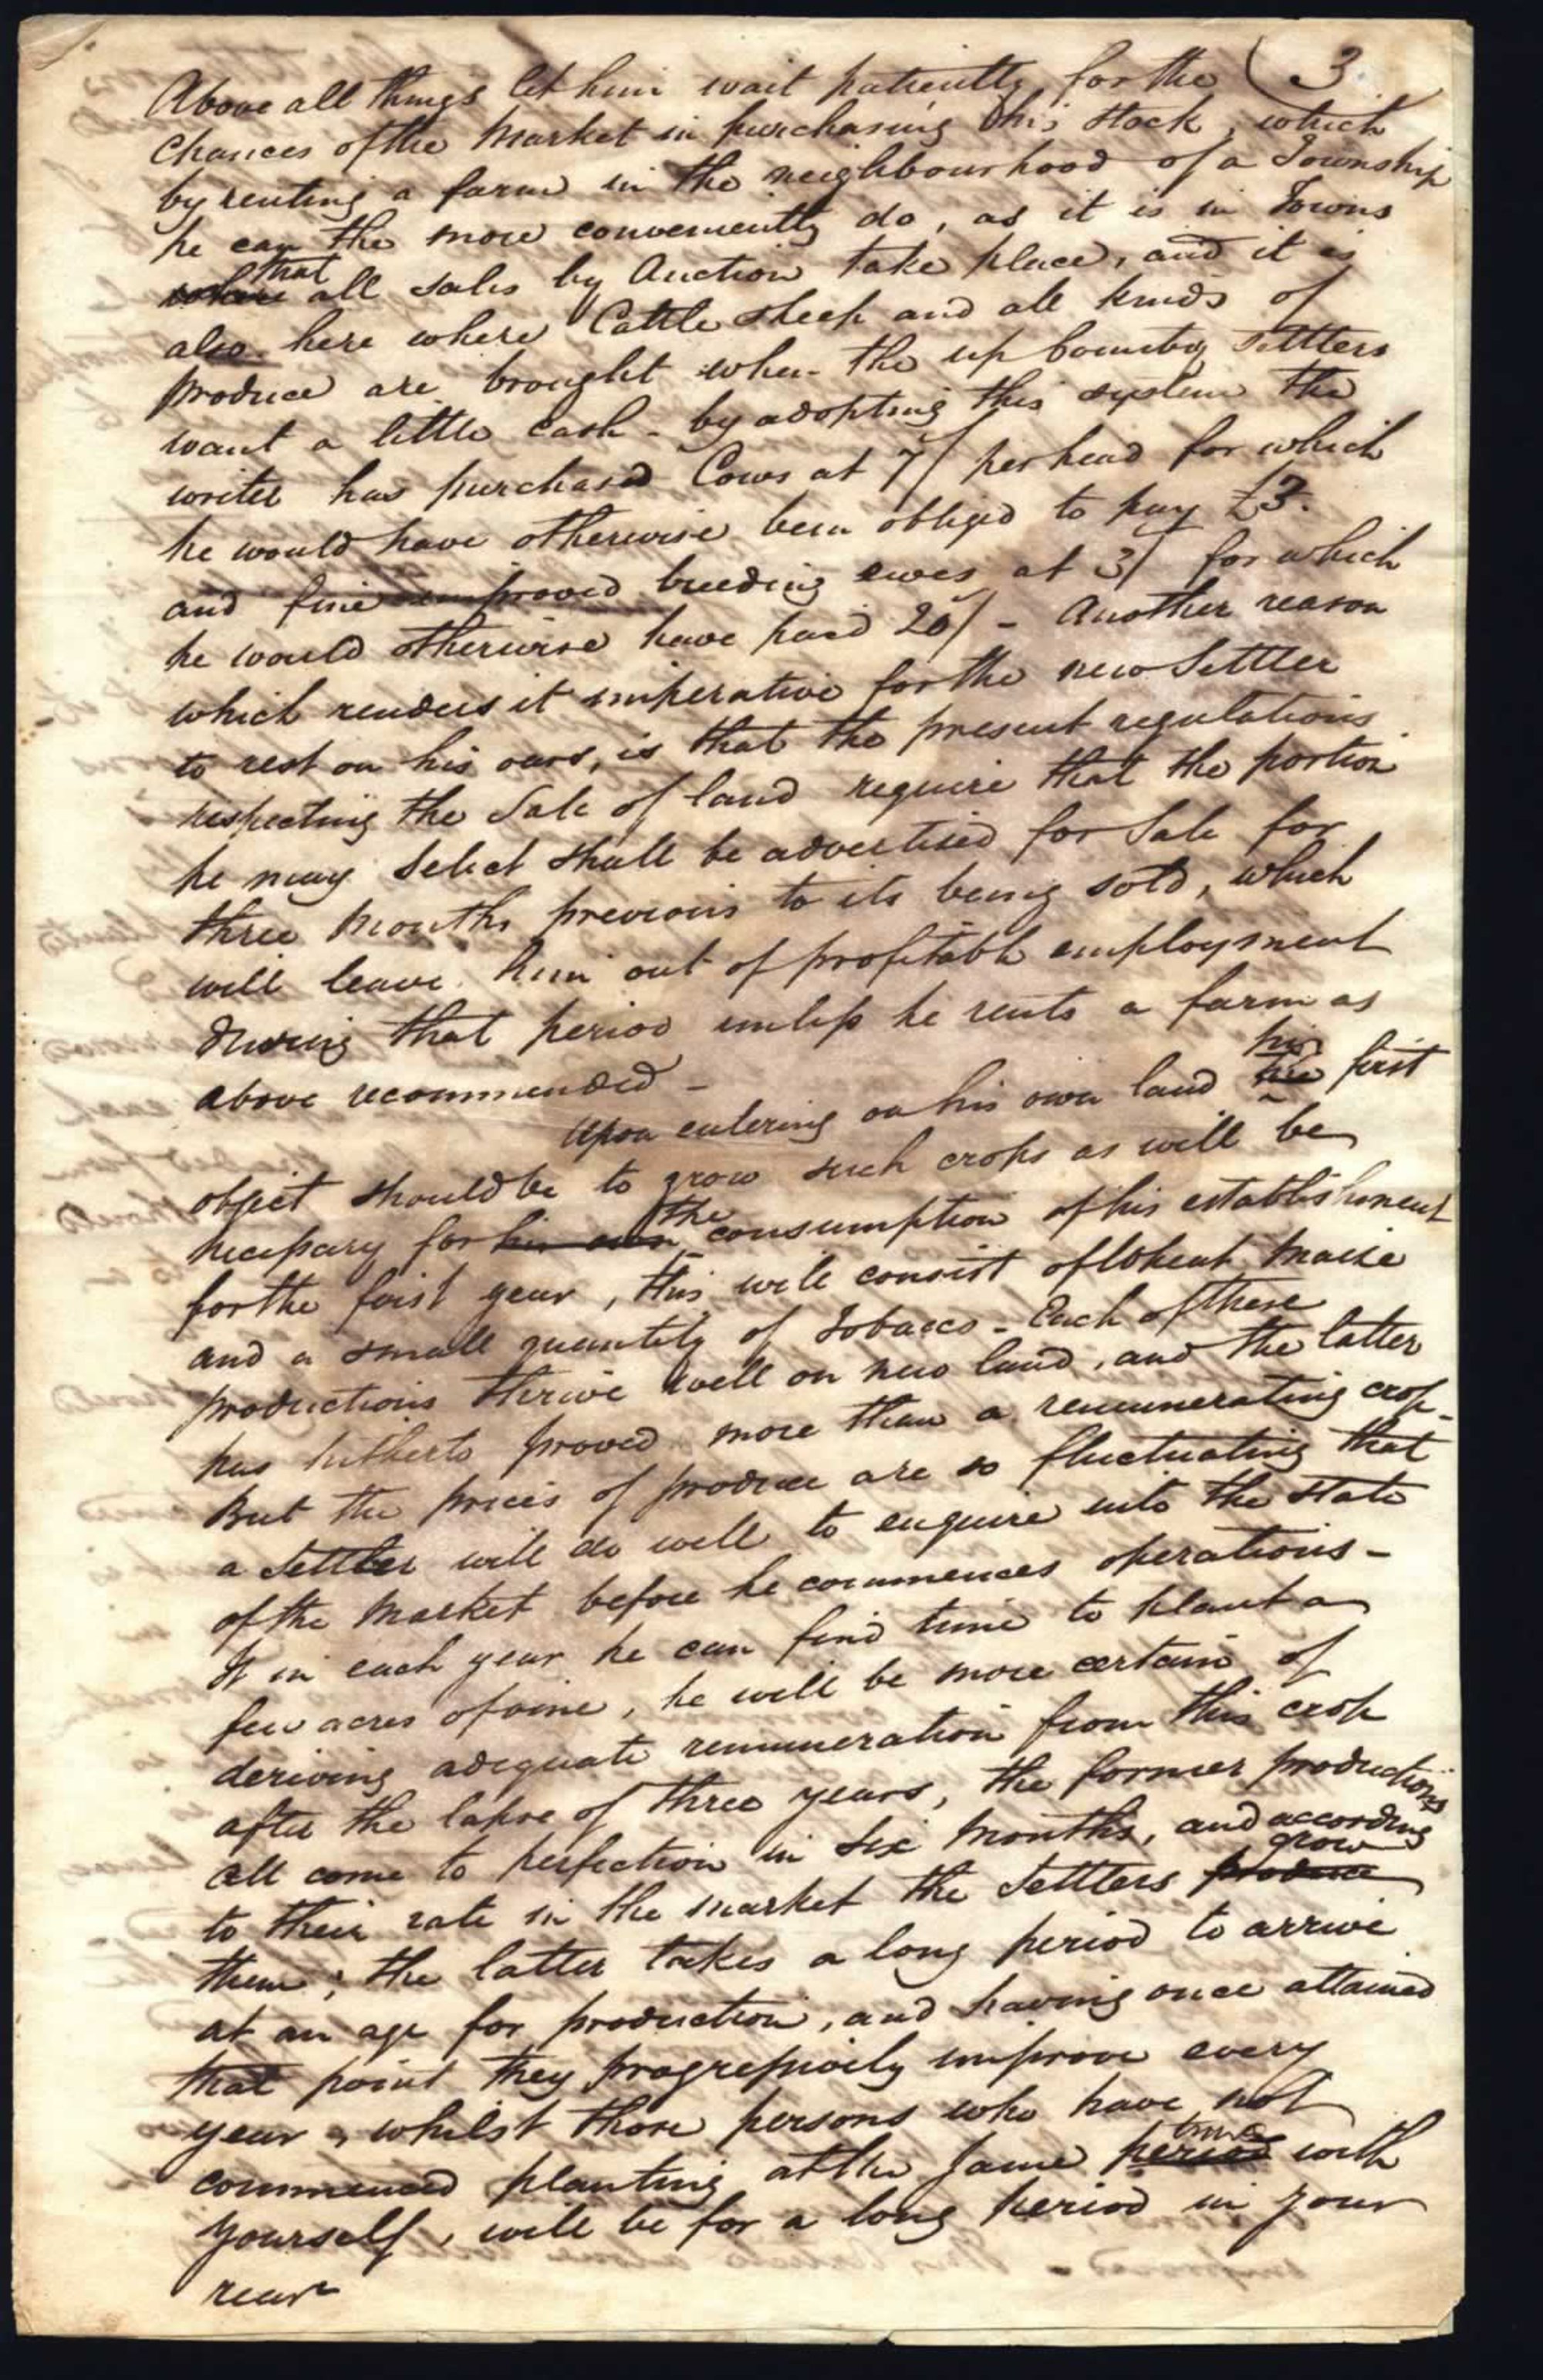 (3
Above all things let him wait patiently for the
Chances of the Market in purchasing his stock, which
by renting a farm in the neighbourhood of a Township
he can the more conveniently do, as it is in Towns
where that all sales by Auction take place, and it is
also here where Cattle sheep and all kinds of
produce are brought when the up Country Settlers
want a little Cash - by adopting this system the
writer has purchased Cows at 7/ per head for which
he would have otherwise been obliged to pay £3.
and fine improved breeding ewes at 3/ for which
he would otherwise have paid 20/ - Another reason
which renders it imperative for the new Settler
to rest on his oars, is that the present regulations
respecting the Sale of land require that the portion
he may Select shall be advertised for Sale for
three Months previous to its being sold, which
will leave him out of profitable employment
during that period unless he rents a farm as
above recommended -
Upon entering on his own land the his first
object should be to grow such crops as will be
necessary for his own the consumption of his establishment
for the first year, this will consist of Wheat Maize
and a small quantity of Tobacco - Each of these
productions thrive well on new land, and the latter
has hitherto proved more than a remunerating crop -
But the prices of produce are so fluctuating that
a Settler will do well to enquire into the state
of the Market before he commences operations -
If in each year he can find time to plant a
few acres of vine, he will be more certain of
deriving adequate remuneration from this crop
after the lapse of three years, the former productions
all come to perfection in six Months, and according
to their rate in the market the Settlers produce grow
them; the latter takes a long period to arrive
at an age for production, and having once attained
that point they progressively improve every
year, whilst those persons who have not
commenced planting at the same period time with
yourself, will be for a long period in your
rear